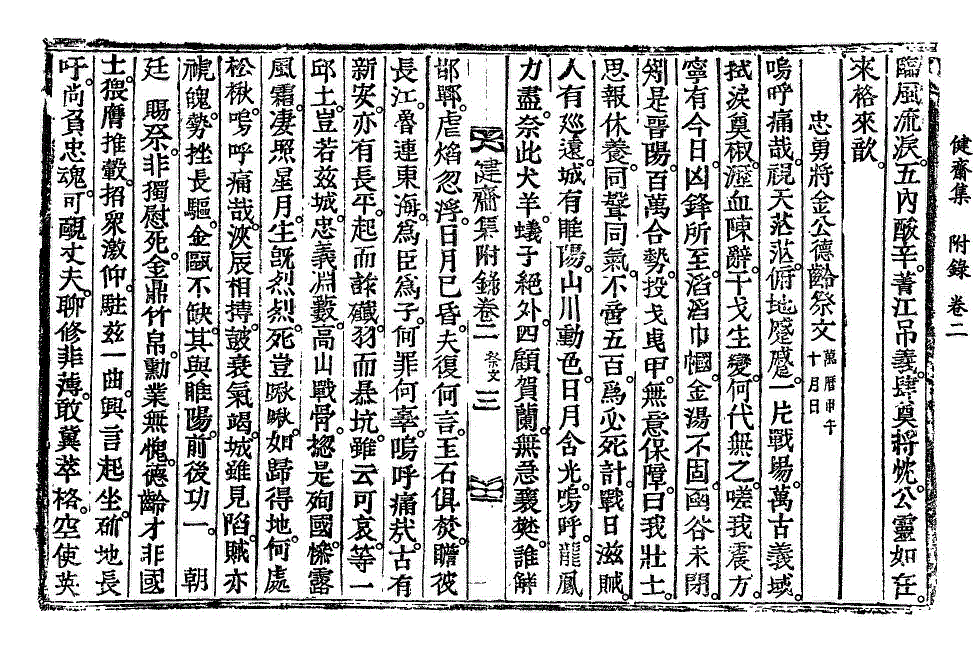 健齋集 附錄 卷二
臨風流淚。五內酸辛。菁江吊義。肆奠將忱。公靈如在。
來格來歆。
忠勇將金公德齡祭文 萬曆甲午十月日
嗚呼痛哉。視天茫茫。俯地蹙蹙。一片戰場。萬古義域。
拭淚奠椒。瀝血陳辭。干戈生變。何代無之。嗟我震方。
寧有今日。凶鋒所至。滔滔巾幗。金湯不固。函谷未閉。
矧是晉陽。百萬合勢。投戈曳甲。無意保障。曰我壯士。
思報休養。同聲同氣。不啻五百。爲必死計。戰日滋賊。
人有廵遠。城有睢陽。山川動色。日月含光。嗚呼。龍鳳
力盡。奈此犬羊。蟻子絕外。四顧賀蘭。無急襄樊。誰解
健齋集附錄卷二 祭文 三
邯鄲。虐焰忽浮。日月已昏。夫復何言。玉石俱焚。瞻彼
長江。魯連東海。爲臣爲子。何罪何辜。嗚呼痛哉。古有
新安。亦有長平。起而誅殲。羽而悬坑。雖云可哀。等一
邱土。豈若茲城。忠義淵藪。高山戰骨。揔是殉國。慘露
風霜。凄照星月。生旣烈烈。死豈啾啾。如歸得地。何處
松楸。嗚呼痛哉。浹辰相搏。皷衰氣竭。城雖見陷。賊亦
禠魄。勢挫長驅。金甌不缺。其與睢陽。前後功一。 朝
廷 賜祭。非獨慰死。金鼎竹帛。勳業無愧。德齡才非國
士。猥膺推轂。招衆激仰。駐茲一曲。興言起坐。斫地長
吁。尙負忠魂。可靦丈夫。聊修非薄。敢冀萃格。空使英